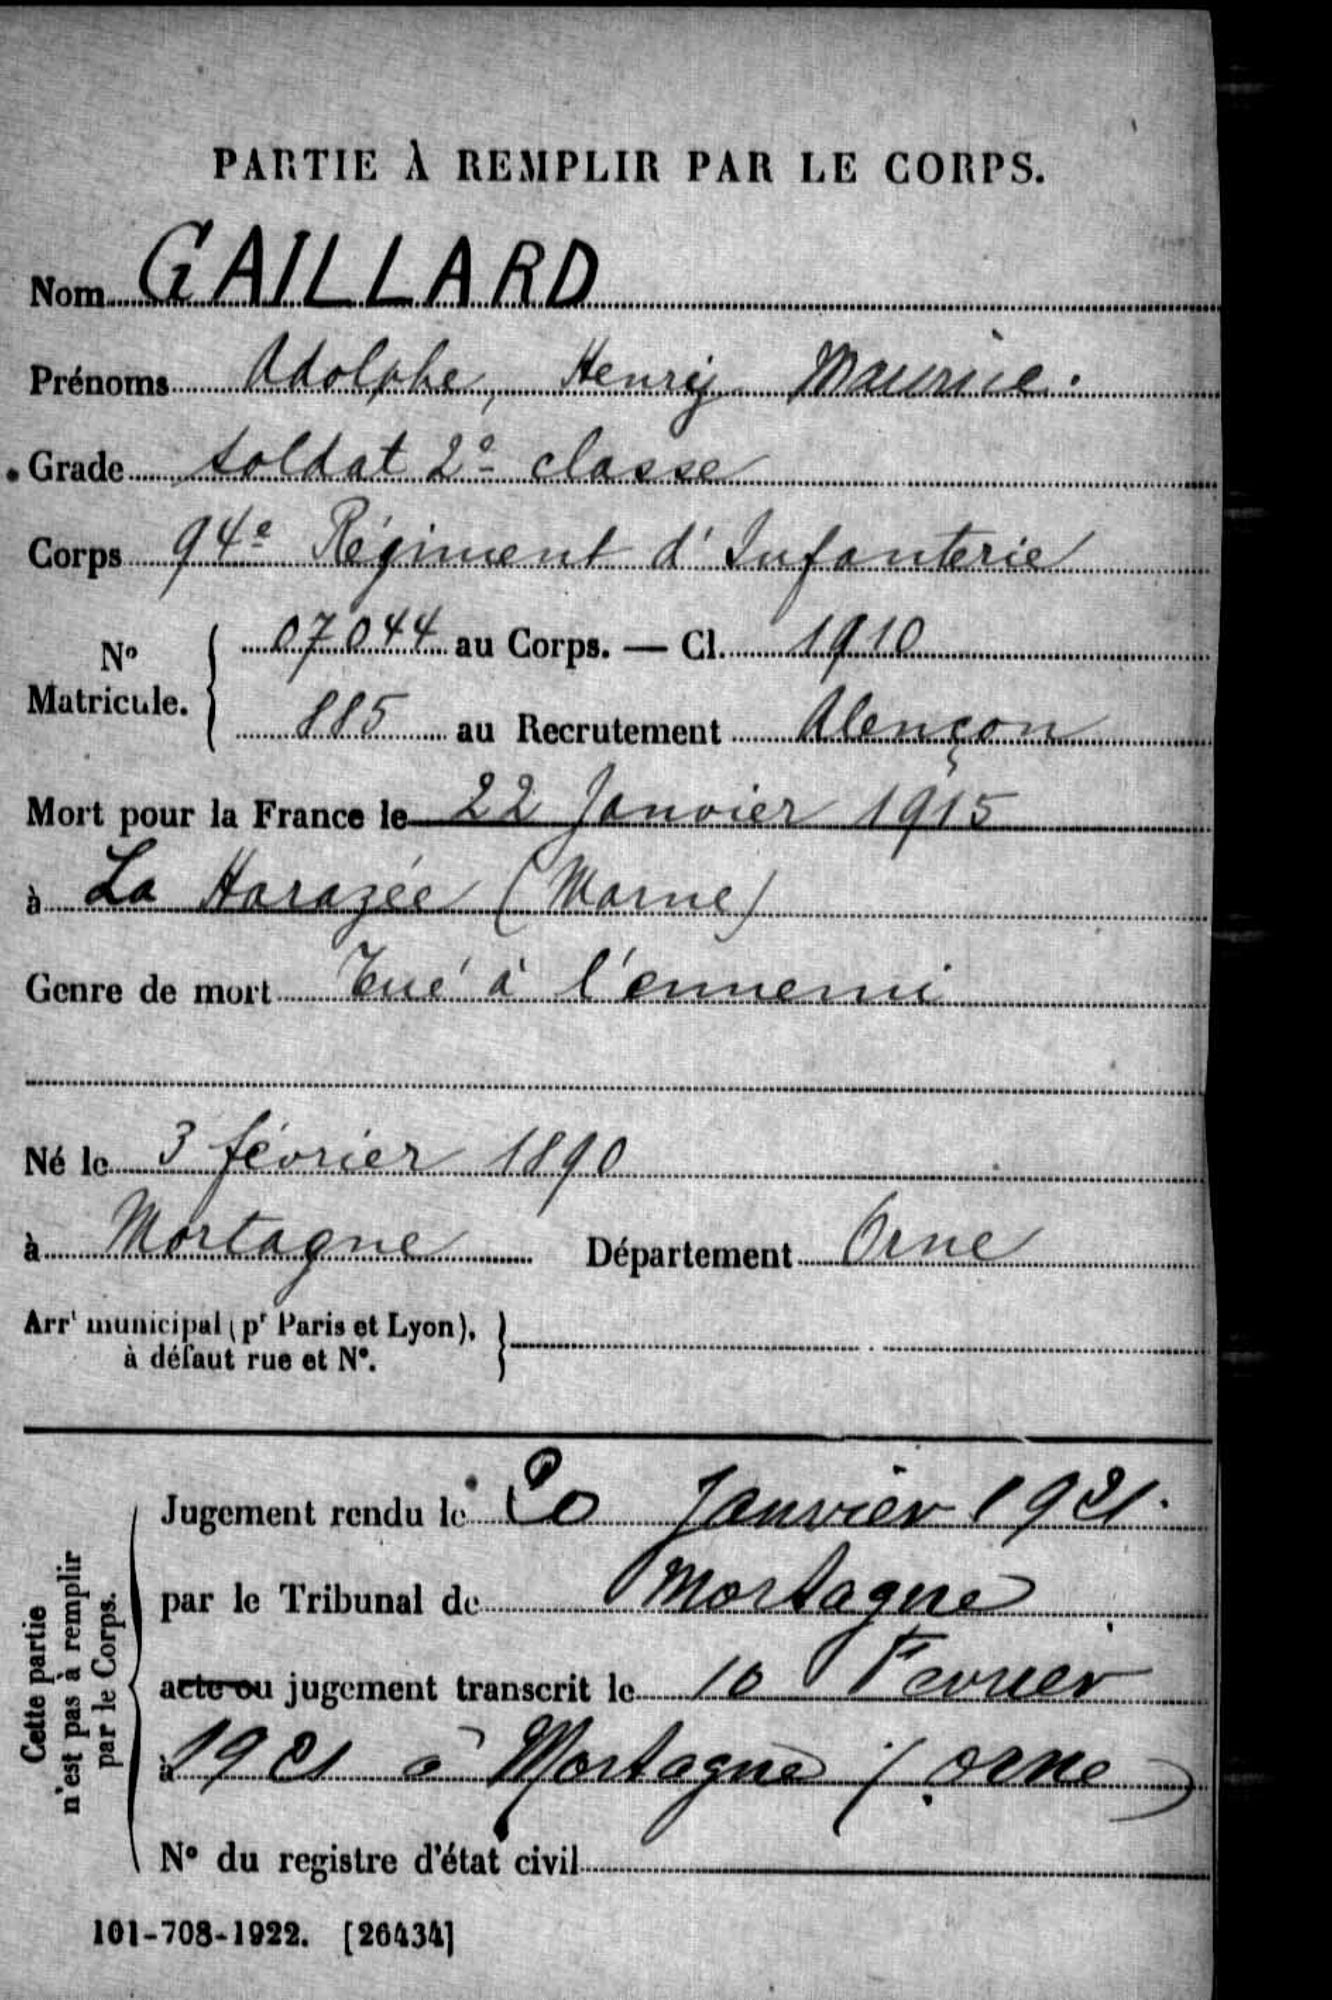 PARTIE À REMPLIR PAR LE CORPS.
Nom GAILLARD
Prénoms Adolphe, Henri Maurice.
Grade soldat 2e classe
Corps 94e Régiment d'Infanterie
No Matricule. { 07044 au Corps. — Cl. 1910
885 au Recrutement Alençon
Mort pour la France le 22 Janvier 1915
à La Harazée (Marne)
Genre de mort Tué à l'ennemi
Né le 3 février 1890
à Mortagne Département Orne
Arrt municipal (pr Paris et Lyon), }
à défaut rue et N°.
Cette partie
n'est pas à remplir
par le Corps.
Jugement rendu le 20 Janvier 1921.
par le Tribunal de Mortagne
acte ou jugement transcrit le 10 Fevrier
à 1921 à Mortagne (Orne)
N° du registre d'état civil
101-708-1922. [26434]